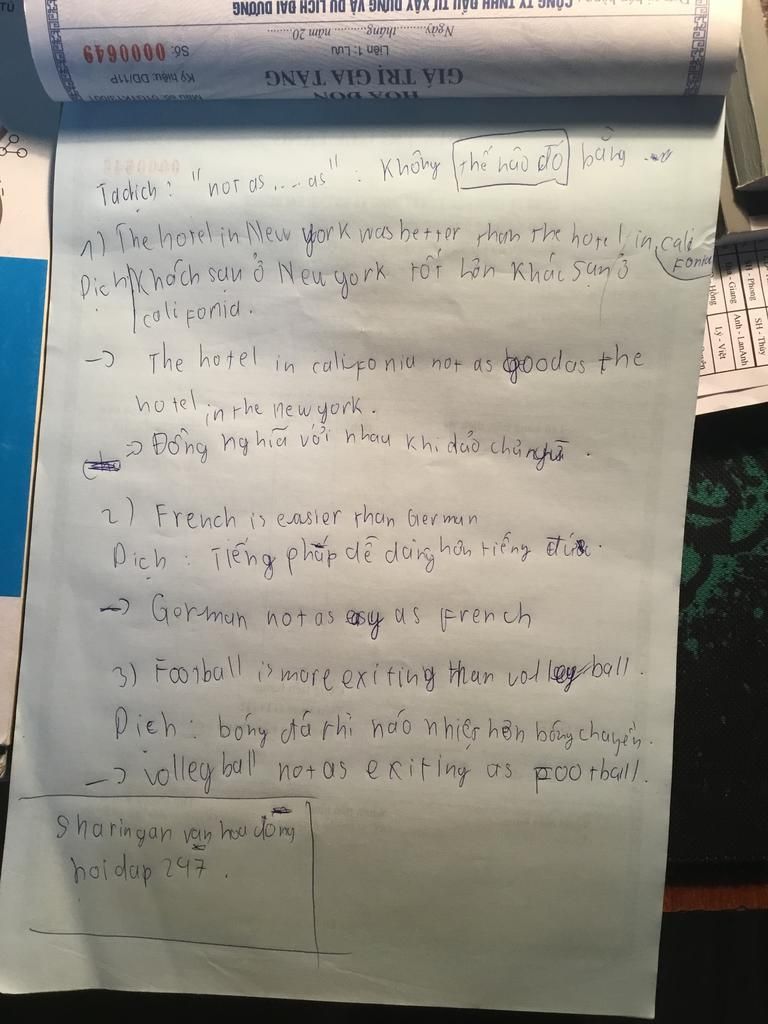 CÔNG TY TNHH ĐẦU TƯ XÂY DỰNG VÀ DU LỊCH ĐẠI DƯƠNG
Ngày........tháng.........năm 20.........
Liên 1: Lưu
Số: 0000649
GIÁ TRỊ GIA TĂNG
Ký hiệu: DD/11P
HÓA ĐƠN
Ta dịch : "not as ... as" : Không thế nào đó bằng
1) The hotel in New york was better than the hotel in cali
Fonia
Dịch Khách sạn ở New york tốt hơn Khác sạn ở
califonia.
-> The hotel in califonia not as good as the
hotel in the new york.
=> Đồng nghĩa với nhau khi đảo chủ ngữ .
2) French is easier than German
Dịch : Tiếng pháp dễ dàng hơn tiếng đức.
-> German not as easy as French
3) Football is more exiting than volleyball.
Dịch : bóng đá thì náo nhiệt hơn bóng chuyền.
-> volleyball not as exiting as Football.
Sharingan vạn hoa đồng
hoidap 247 .
SH - Thủy
Anh - LanAnh
Lý - Việt